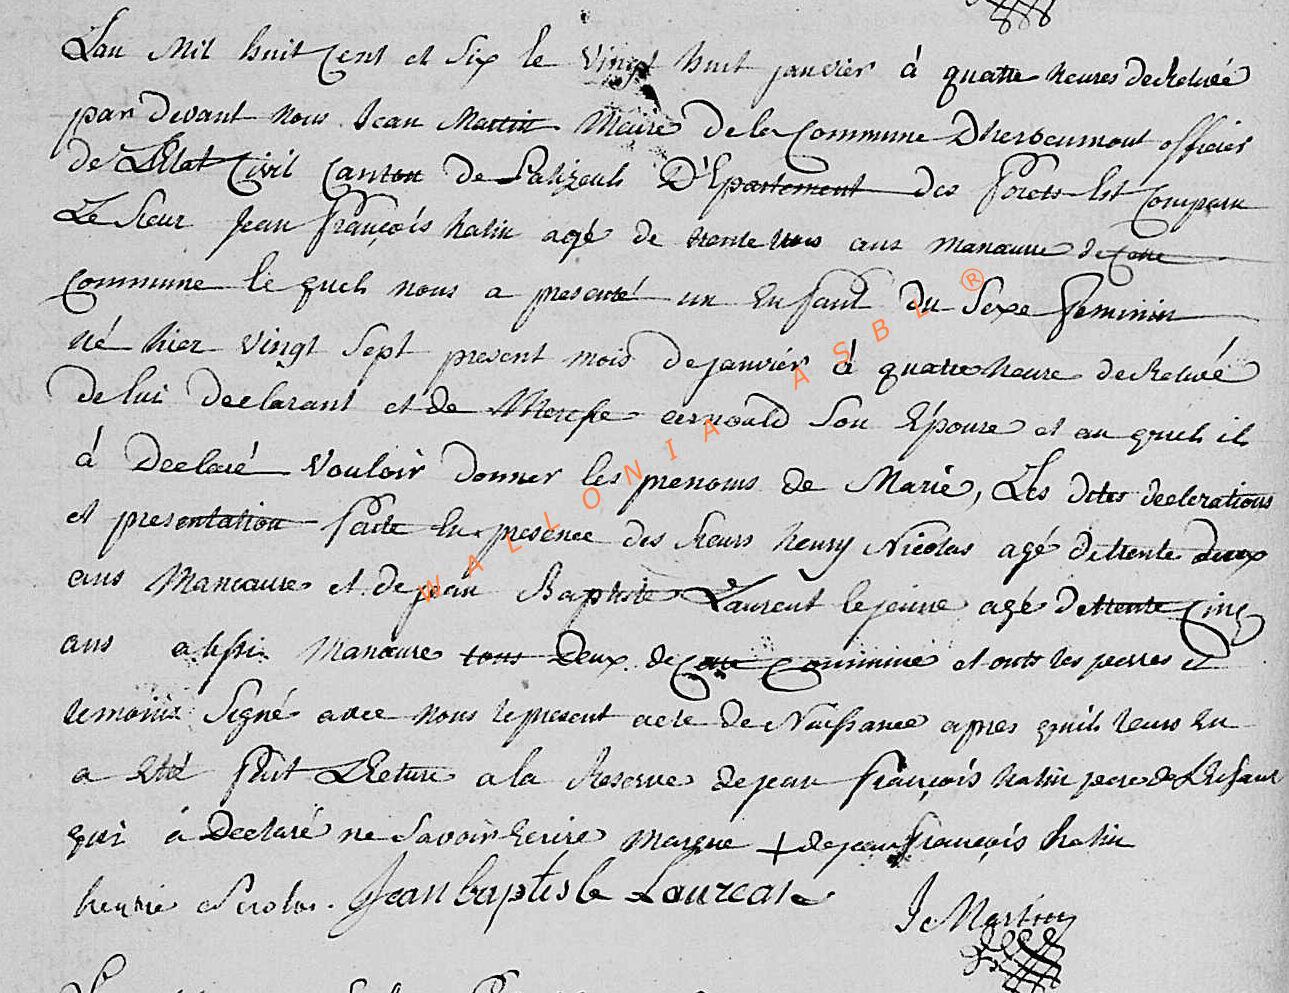 Lan Mil huit Cent et Six le Vingt huit janvier à quatre heures de Relevée
par Devant Nous Jean Martin Maire de la Commune Dherbeumont officier
de L'Etat Civil Canton de Palizeuls D'Epartement des forets Est Comparu
Le Sieur Jean François halin agé de trente trois ans Manœuvre de Cette
Commune le quels nous a presenté un Enfant du Sexe feminin
né hier Vingt Sept present mois de janvier à quatre heure de Relevé
de lui Declarant et de Arnould Son Epouse et au quels il
à Declaré Vouloir donner les prenoms de Marie, Les dites declerations
et presentation faite En presence des Sieurs henry Nicolas agé de trente deux
ans Manœuvre et de jean Baptiste Laurent le jeune agé de trente Cinq
ans aussi Manœuvre tous Deux de Cette Commune et onts les perres et
temoins Signé avec Nous le present acte de Naissance apres quils leurs En
a Eté fait LEcture a la Reserve de jean François halin pere de LEnfant
qui à Declaré ne Savoir Ecrire Marque + de jean François halin
henrie Nicolas. Jean baptiste Laurean J Martin
WALLONIA ASBL ®